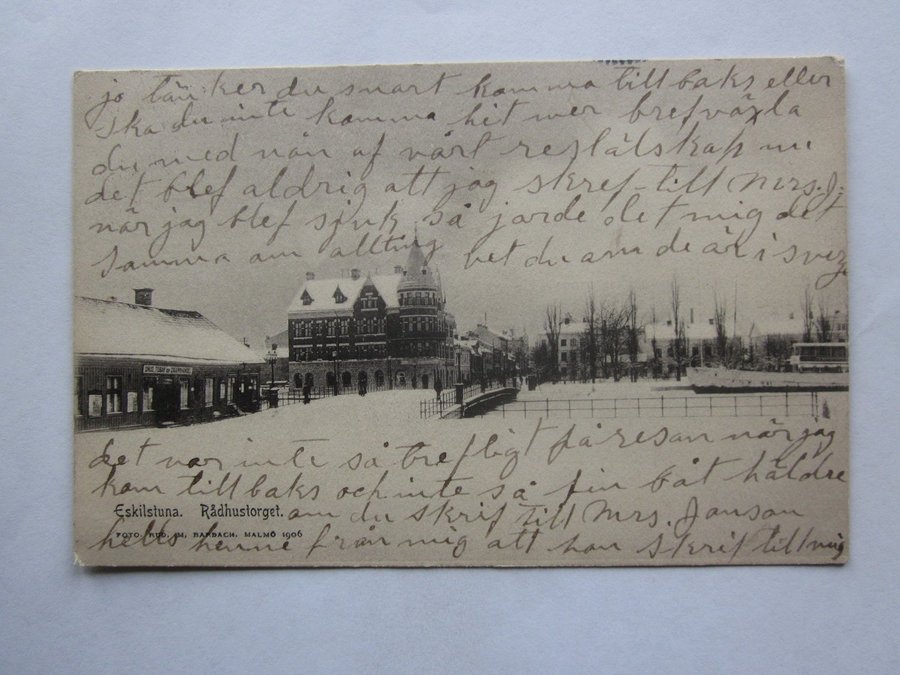 jo tänker du snart komma till baks eller
ska du inte komma hit mer brefväxla
du med nån af vårt reslälskap nu
det blef aldrig att jag skref till Mrs. J.
när jag blef sjuk så jorde det mig det
samma om allting vet du om de är i sverj
det var inte så trefligt på resan när jag
kom till baks och inte så fin båt håldre
Eskilstuna. Rådhustorget. om du skrif till Mrs. Janson
FOTO. RUD. M, BARBACH, MALMÖ 1906
hells henne från mig att hon skrif till mig